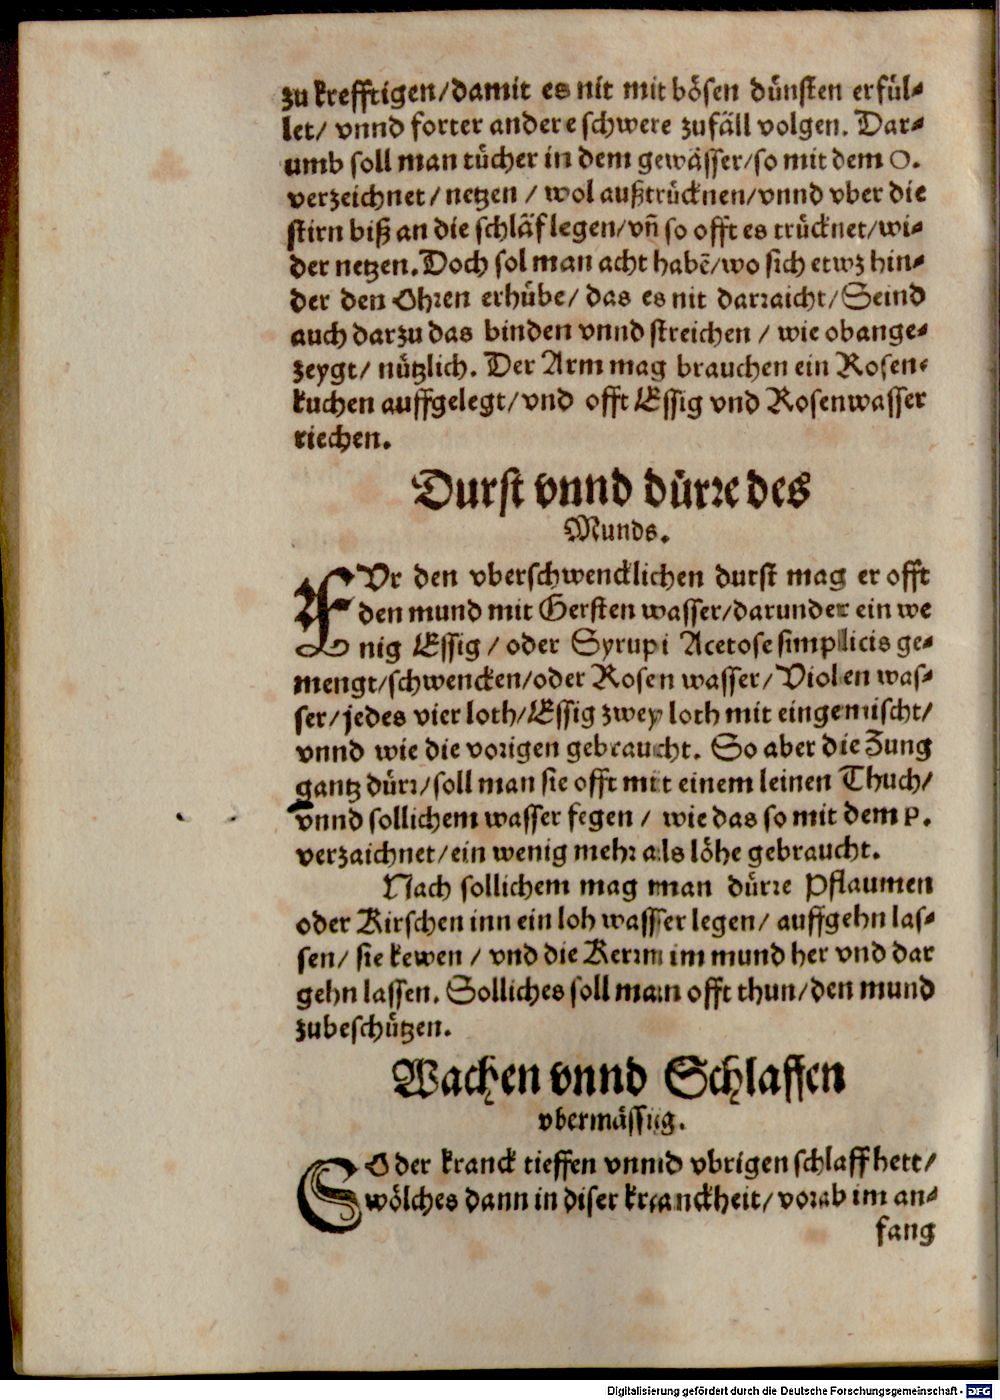 zu krefftigen/damit es nit mit bösen dünsten erfül-
let/ vnnd forter andere schwere zufäll volgen. Dar-
umb soll man tücher in dem gewässer/so mit dem O.
verzeichnet/ netzen / wol außtrücknen/vnnd vber die
stirn biß an die schläf legen/vñ so offt es trücknet/wi-
der netzen. Doch sol man acht habẽ/wo sich etwz hin-
der den Ohren erhübe/ das es nit darzaicht/ Seind
auch darzu das binden vnnd streichen / wie obange-
zeygt/ nützlich. Der Arm mag brauchen ein Rosen-
kuchen auffgelegt/ vnd offt Essig vnd Rosenwasser
riechen.
Durst vnnd dürre des
Munds.
FVr den vberschwencklichen durst mag er offt
den mund mit Gersten wasser/darunder ein we
nig Essig / oder Syrupi Acetose simplicis ge-
mengt/schwencken/oder Rosen wasser/ Violen was-
ser/jedes vier loth/Essig zwey loth mit eingemischt/
vnnd wie die vorigen gebraucht. So aber die Zung
gantz dürr/soll man sie offt mit einem leinen Thuch/
vnnd sollichem wasser fegen / wie das so mit dem P.
verzaichnet/ein wenig mehr als löhe gebraucht.
Nach sollichem mag man dürre Pflaumen
oder Kirschen inn ein loh wasser legen/ auffgehn las-
sen/ sie kewen / vnd die Kernn im mund her vnd dar
gehn lassen. Solliches soll man offt thun/den mund
zubeschützen.
Wachen vnnd Schlaffen
vbermässig.
SO der kranck tieffen vnnd vbrigen schlaff hett/
wölches dann in diser kranckheit/ vorab im an-
fang
Digitalisierung gefördert durch die Deutsche Forschungsgemeinschaft - DFG